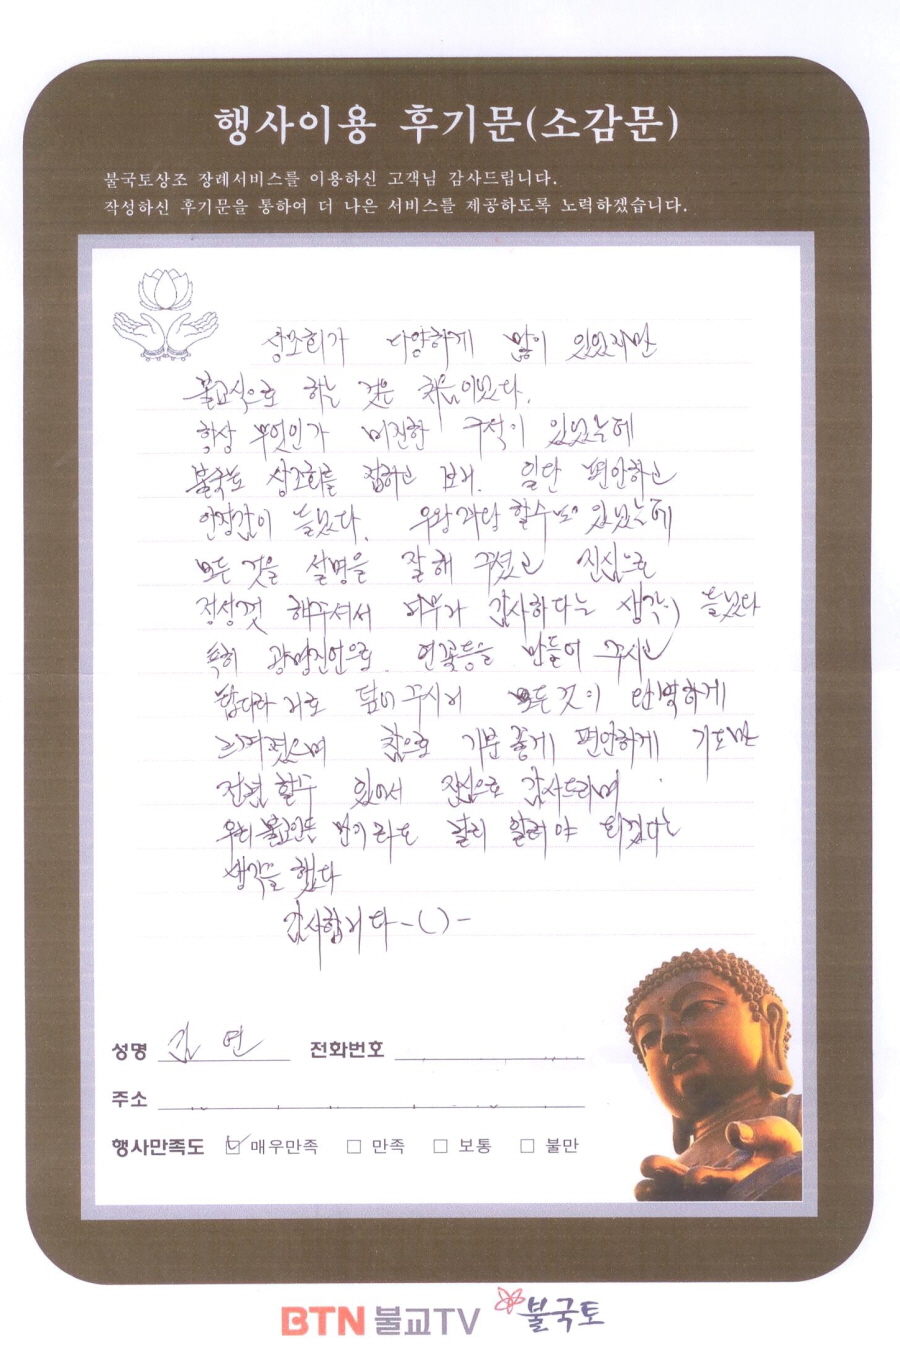 행사이용 후기문(소감문)
불국토상조 장례서비스를 이용하신 고객님 감사드립니다.
작성하신 후기문을 통하여 더 나은 서비스를 제공하도록 노력하겠습니다.
상조회가 다양하게 많이 있었지만
불교식으로 하는 것은 처음이었다.
항상 무엇인가 허전한 구석이 있었는데
불국토 상조회를 접하고 보니. 일단 편안하고
안정감이 들었다. 우왕좌왕 할수도 있었는데
모든 것을 설명을 잘해 주셨고 진심으로
정성껏 해주셔서 너무나 감사하다는 생각이 들었다
특히 광명진언으로 연꽃등을 만들어 주시고
다라니로 덮어주시며 모든것이 완벽하게
참으로 기분좋게 편안하게 기도만
전념할수 있어서 진심으로 감사드리며
우리 불교인들 만이라도 널리 알려야 되겠다는
생각을 했다
감사합니다 -( )-
성명 김 연 전화번호
주소
행사만족도 매우만족 만족 보통 불만
BTN 불교TV 불국토